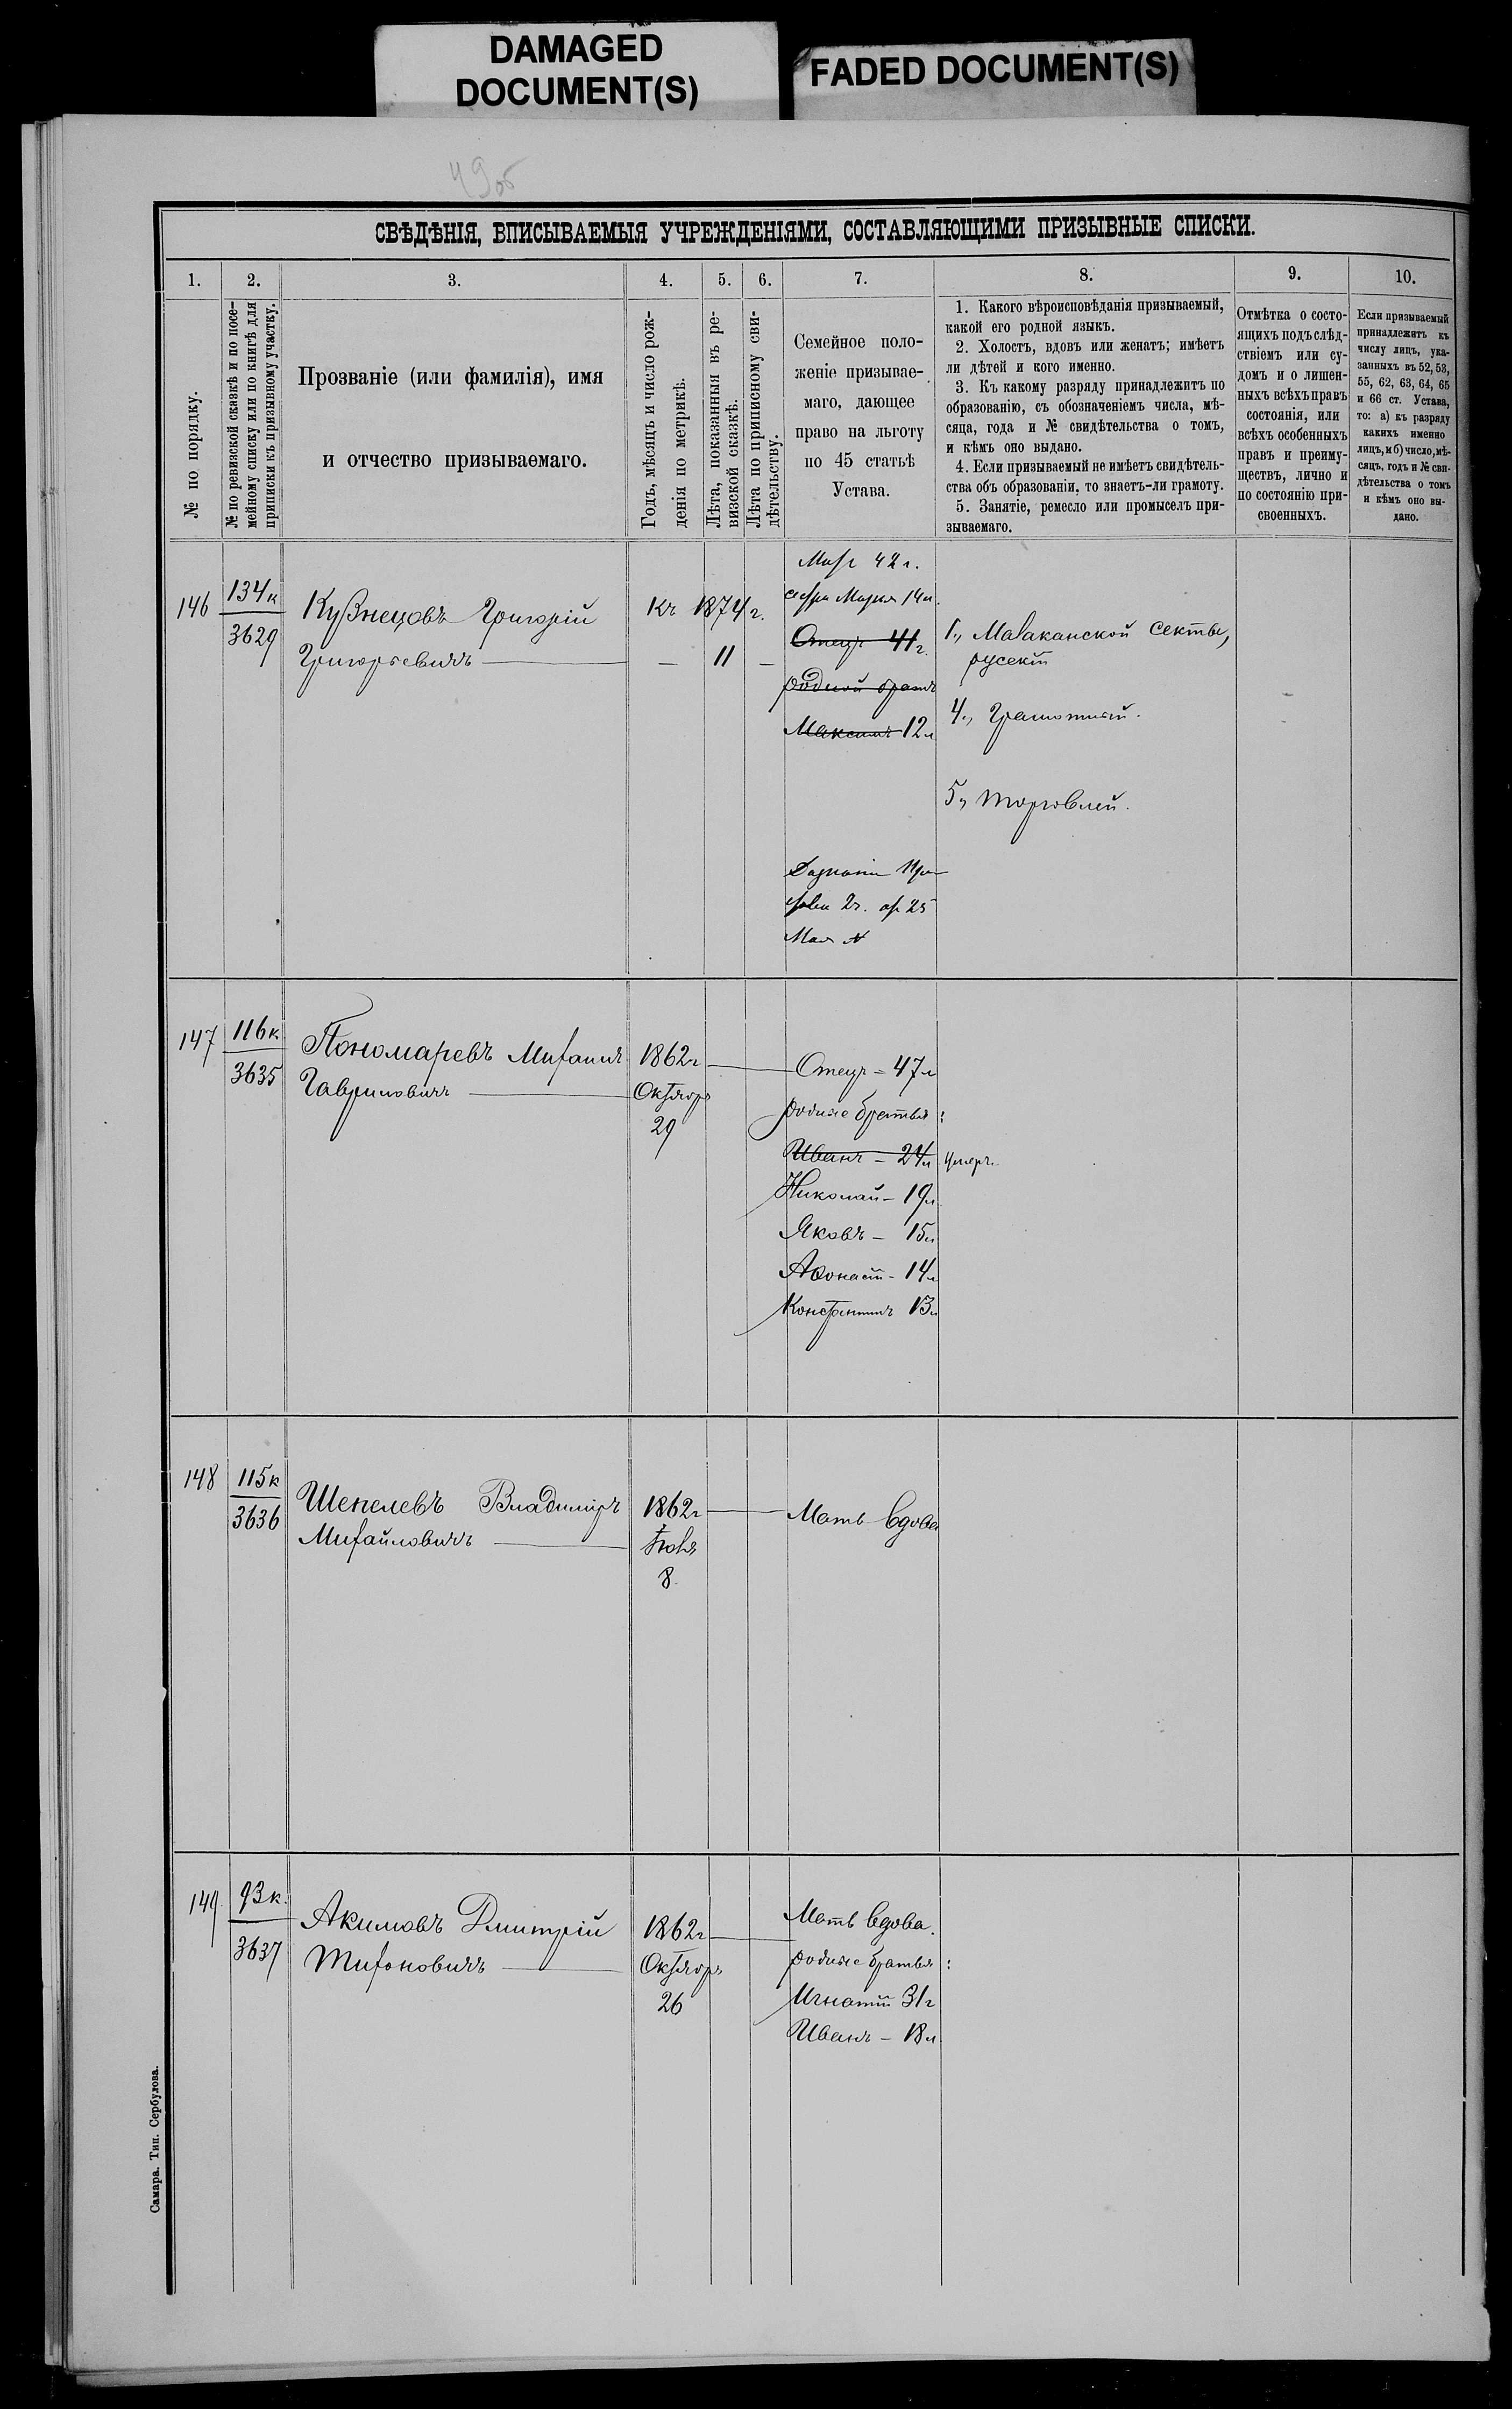 DAMAGED
DOCUMENT(S)
FADED DOCUMENT(S)
49об
СВѢДѢНІЯ, ВПИСЫВАЕМЫЯ УЧРЕЖДЕНІЯМИ, СОСТАВЛЯЮЩИМИ ПРИЗЫВНЫЕ СПИСКИ.
1.
2.
3.
4.
5.
6.
7.
8.
9.
10.
№ по порядку.
№ по ревизской сказкѣ и по посе-
мейному списку или по книгѣ для
приписки къ призывному участку.
Прозваніе (или фамилія), имя
и отчество призываемаго.
Годъ, мѣсяцъ и число рож-
денія по метрикѣ.
Лѣта, показанныя въ ре-
визской сказкѣ.
Лѣта по приписному сви-
дѣтельству.
Семейное поло-
женіе призывае-
маго, дающее
право на льготу
по 45 статьѣ
Устава.
1. Какого вѣроисповѣданія призываемый,
какой его родной языкъ.
2. Холостъ, вдовъ или женатъ; имѣетъ
ли дѣтей и кого именно.
3. Къ какому разряду принадлежитъ по
образованію, съ обозначеніемъ числа, мѣ-
сяца, года и № свидѣтельства о томъ,
и кѣмъ оно выдано.
4. Если призываемый не имѣетъ свидѣтель-
ства объ образованіи, то знаетъ-ли грамоту.
5. Занятіе, ремесло или промыселъ при-
зываемаго.
Отмѣтка о состо-
ящихъ подъ слѣд-
ствіемъ или су-
домъ и о лишен-
ныхъ всѣхъ правъ
состоянія, или
всѣхъ особенныхъ
правъ и преиму-
ществъ, лично и
по состоянію при-
своенныхъ.
Если призываемый
принадлежитъ къ
числу лицъ, ука-
занныхъ въ 52, 53,
55, 62, 63, 64, 65
и 66 ст. Устава,
то: а) къ разряду
какихъ именно
лицъ, и б) число, мѣ-
сяцъ, годъ и № сви-
дѣтельства о томъ
и кѣмъ оно вы-
дано.
146
134к
3629
Кузнецовъ Григорій
Григорьевичъ
Къ 1874 г.
— 11 —
Мать 42 г.
сестра Марья 14 л.
Отецъ 41 г.
родной братъ
Максимъ 12 л
1., Малаканской секты,
русскій
4., Грамотный.
5., Торговлей.
147
116к
3635
Пономаревъ Михаилъ
Гавриловичъ
1862 г
Октября
29
Отецъ - 47 л
родные братья:
Иванъ - 24 л умеръ.
Николай - 19 л
Яковъ - 15 л
Афонасій - 14 л
Константинъ 13 л
148
115к
3636
Шепелевъ Владиміръ
Михайловичъ
1862 г
8
Мать вдова
149
93к.
3637
Акимовъ Дмитрій
Тихоновичъ
1862 г
Октября
26
Мать вдова.
родные братья:
Игнатій 31 г
Иванъ - 18 л
Самара. Тип. Сербулова.